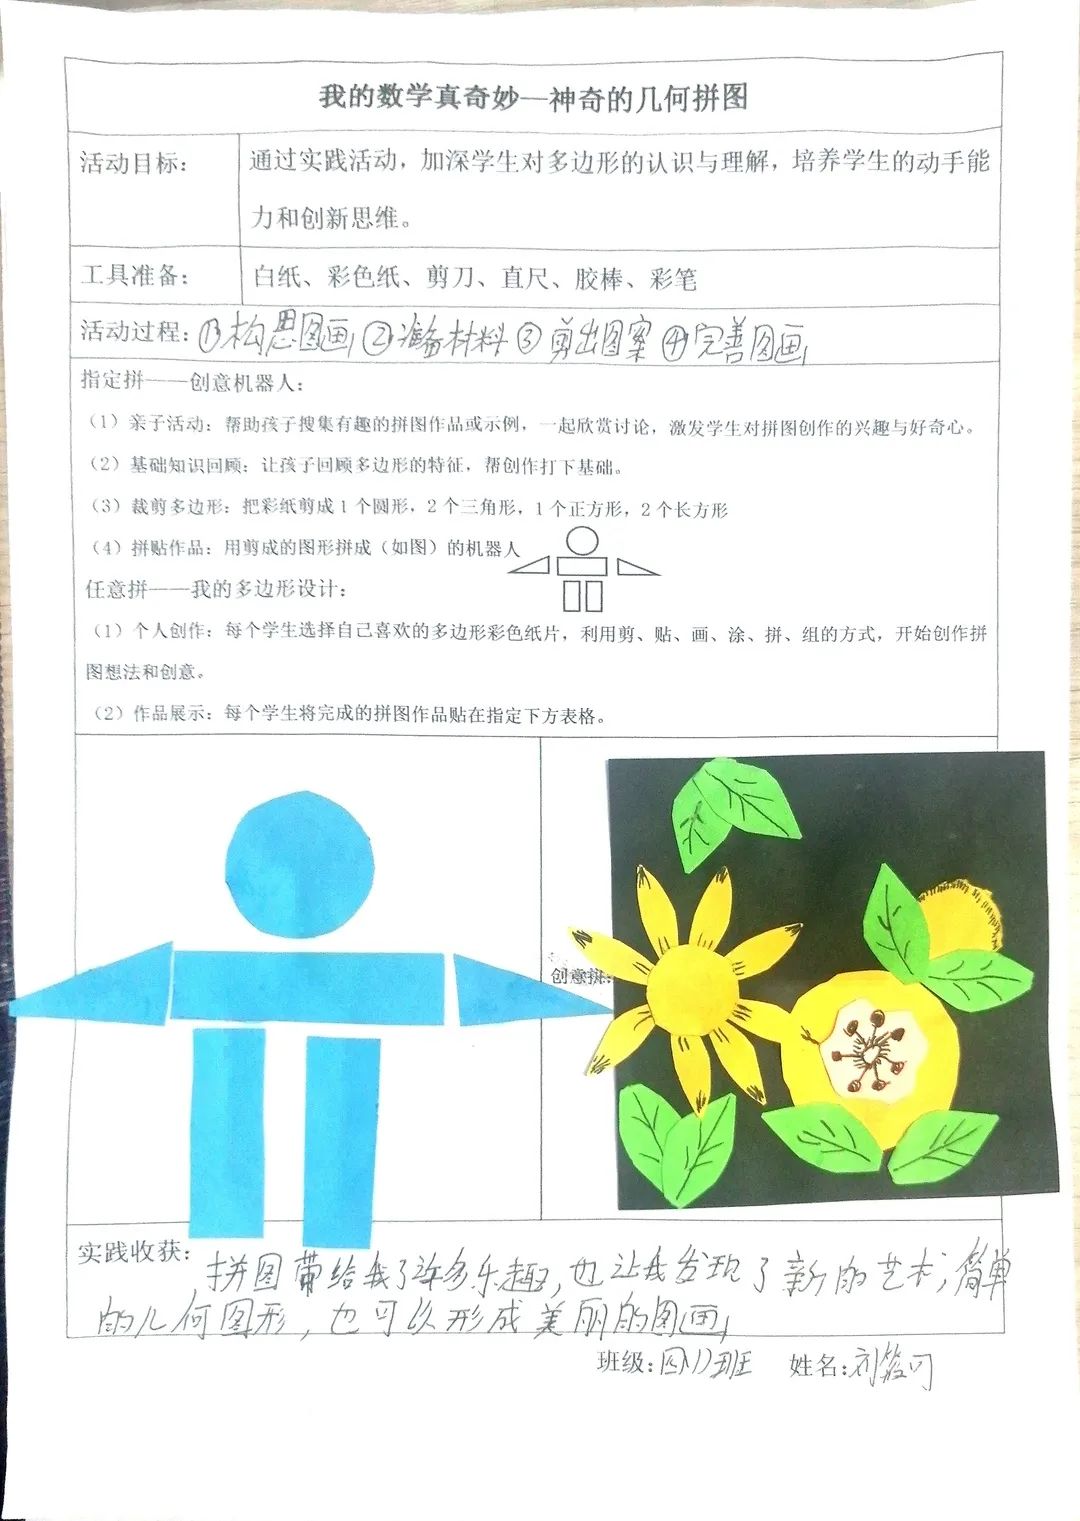 我的数学真奇妙—神奇的几何拼图
活动目标:
通过实践活动，加深学生对多边形的认识与理解，培养学生的动手能
力和创新思维。
工具准备:
白纸、彩色纸、剪刀、直尺、胶棒、彩笔
活动过程:①构思图画②准备材料③剪出图案④完善图画
指定拼——创意机器人:
（1）亲子活动：帮助孩子搜集有趣的拼图作品或示例，一起欣赏讨论，激发学生对拼图创作的兴趣与好奇心。
（2）基础知识回顾：让孩子回顾多边形的特征，帮创作打下基础。
（3）裁剪多边形：把彩纸剪成1个圆形，2个三角形，1个正方形，2个长方形
（4）拼贴作品：用剪成的图形拼成（如图）的机器人
任意拼——我的多边形设计:
（1）个人创作：每个学生选择自己喜欢的多边形彩色纸片，利用剪、贴、画、涂、拼、组的方式，开始创作拼
图想法和创意。
（2）作品展示：每个学生将完成的拼图作品贴在指定下方表格。
创意拼:
实践收获:
拼图带给我了许多乐趣,也让我发现了新的艺术,简单
的几何图形,也可以形成美丽的图画
班级:四(1)班 姓名:刘筱可